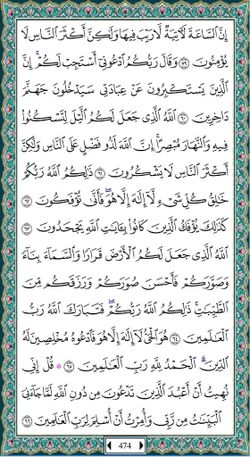 إِنَّ ٱلسَّاعَةَ لَءَاتِيَةٌ لَّا رَيْبَ فِيهَا وَلَٰكِنَّ أَكْثَرَ ٱلنَّاسِ لَا
يُؤْمِنُونَ ٥٩ وَقَالَ رَبُّكُمُ ٱدْعُونِىٓ أَسْتَجِبْ لَكُمْ ۚ إِنَّ
ٱلَّذِينَ يَسْتَكْبِرُونَ عَنْ عِبَادَتِى سَيَدْخُلُونَ جَهَنَّمَ
دَاخِرِينَ ٦٠ ٱللَّهُ ٱلَّذِى جَعَلَ لَكُمُ ٱلَّيْلَ لِتَسْكُنُوا۟
فِيهِ وَٱلنَّهَارَ مُبْصِرًا ۚ إِنَّ ٱللَّهَ لَذُو فَضْلٍ عَلَى ٱلنَّاسِ وَلَٰكِنَّ
أَكْثَرَ ٱلنَّاسِ لَا يَشْكُرُونَ ٦١ ذَٰلِكُمُ ٱللَّهُ رَبُّكُمْ
خَٰلِقُ كُلِّ شَىْءٍ لَّآ إِلَٰهَ إِلَّا هُوَ ۖ فَأَنَّىٰ تُؤْفَكُونَ ٦٢
كَذَٰلِكَ يُؤْفَكُ ٱلَّذِينَ كَانُوا۟ بِـَٔايَٰتِ ٱللَّهِ يَجْحَدُونَ ٦٣
ٱللَّهُ ٱلَّذِى جَعَلَ لَكُمُ ٱلْأَرْضَ قَرَارًا وَٱلسَّمَآءَ بِنَآءً
وَصَوَّرَكُمْ فَأَحْسَنَ صُوَرَكُمْ وَرَزَقَكُم مِّنَ
ٱلطَّيِّبَٰتِ ۚ ذَٰلِكُمُ ٱللَّهُ رَبُّكُمْ ۖ فَتَبَارَكَ ٱللَّهُ رَبُّ
ٱلْعَٰلَمِينَ ٦٤ هُوَ ٱلْحَىُّ لَآ إِلَٰهَ إِلَّا هُوَ فَٱدْعُوهُ مُخْلِصِينَ لَهُ
ٱلدِّينَ ۗ ٱلْحَمْدُ لِلَّهِ رَبِّ ٱلْعَٰلَمِينَ ٦٥ قُلْ إِنِّى
نُهِيتُ أَنْ أَعْبُدَ ٱلَّذِينَ تَدْعُونَ مِن دُونِ ٱللَّهِ لَمَّا جَآءَنِىَ
ٱلْبَيِّنَٰتُ مِن رَّبِّى وَأُمِرْتُ أَنْ أُسْلِمَ لِرَبِّ ٱلْعَٰلَمِينَ ٦٦
474